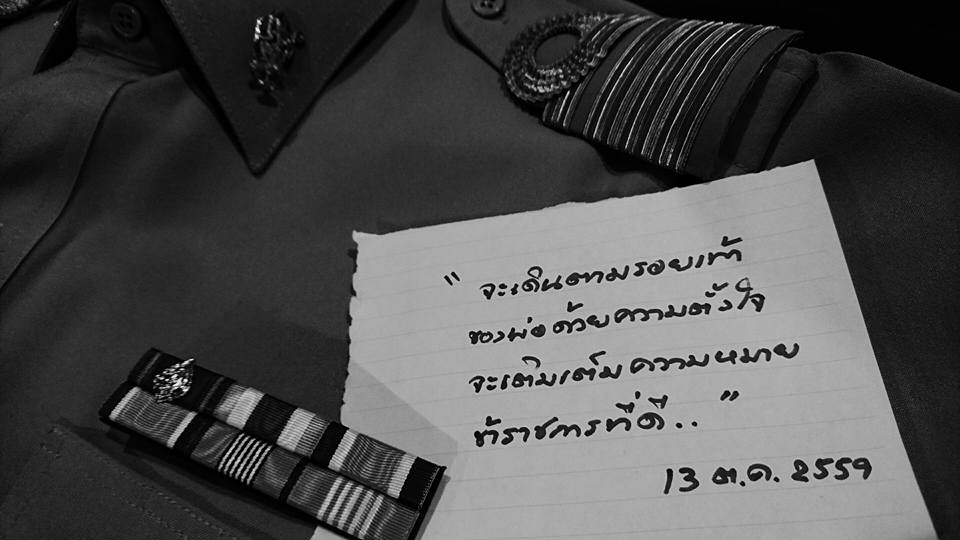 " จะเดินตามรอยเท้า
ของพ่อด้วยความตั้งใจ
จะเติมเต็มความหมาย
ข้าราชการที่ดี.. "
13 ต.ค. 2559